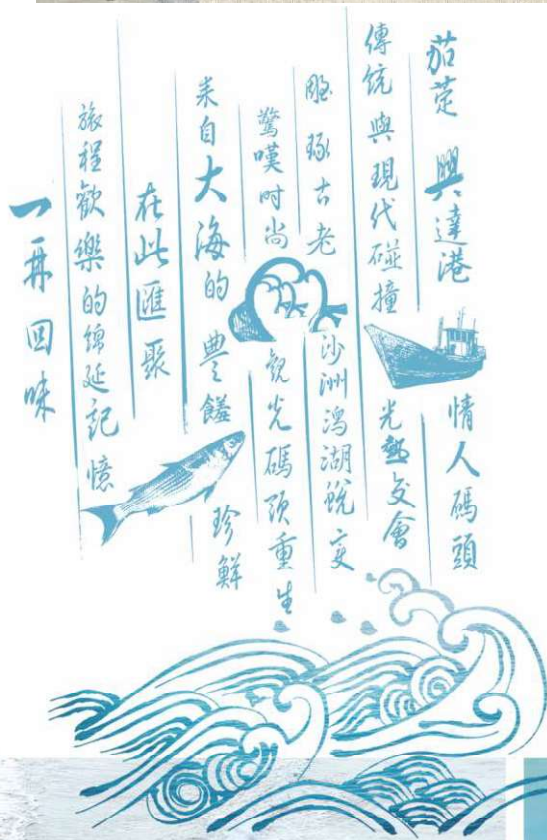 茄萣 興達港 情人碼頭
傳統與現代碰撞 光熱交會
雕琢古老 沙洲潟湖蛻変
驚嘆时尚 観光碼頭重生
来自大海的豊饒 珍鮮
在此匯聚
旅程歡樂的綿延記憶
一再回味